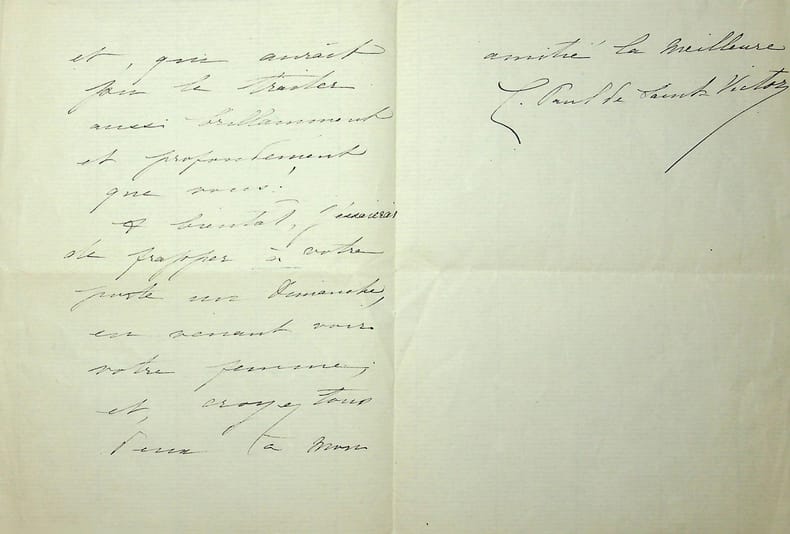 et, qui aurait
pu le traiter
aussi brillamment
et profondément
que vous!
A bientôt, j'essaierai
de frapper à votre
porte un Dimanche,
en venant voir
votre femme;
et, croyez tous
deux à mon
amitié la meilleure
Paul de Saint-Victor